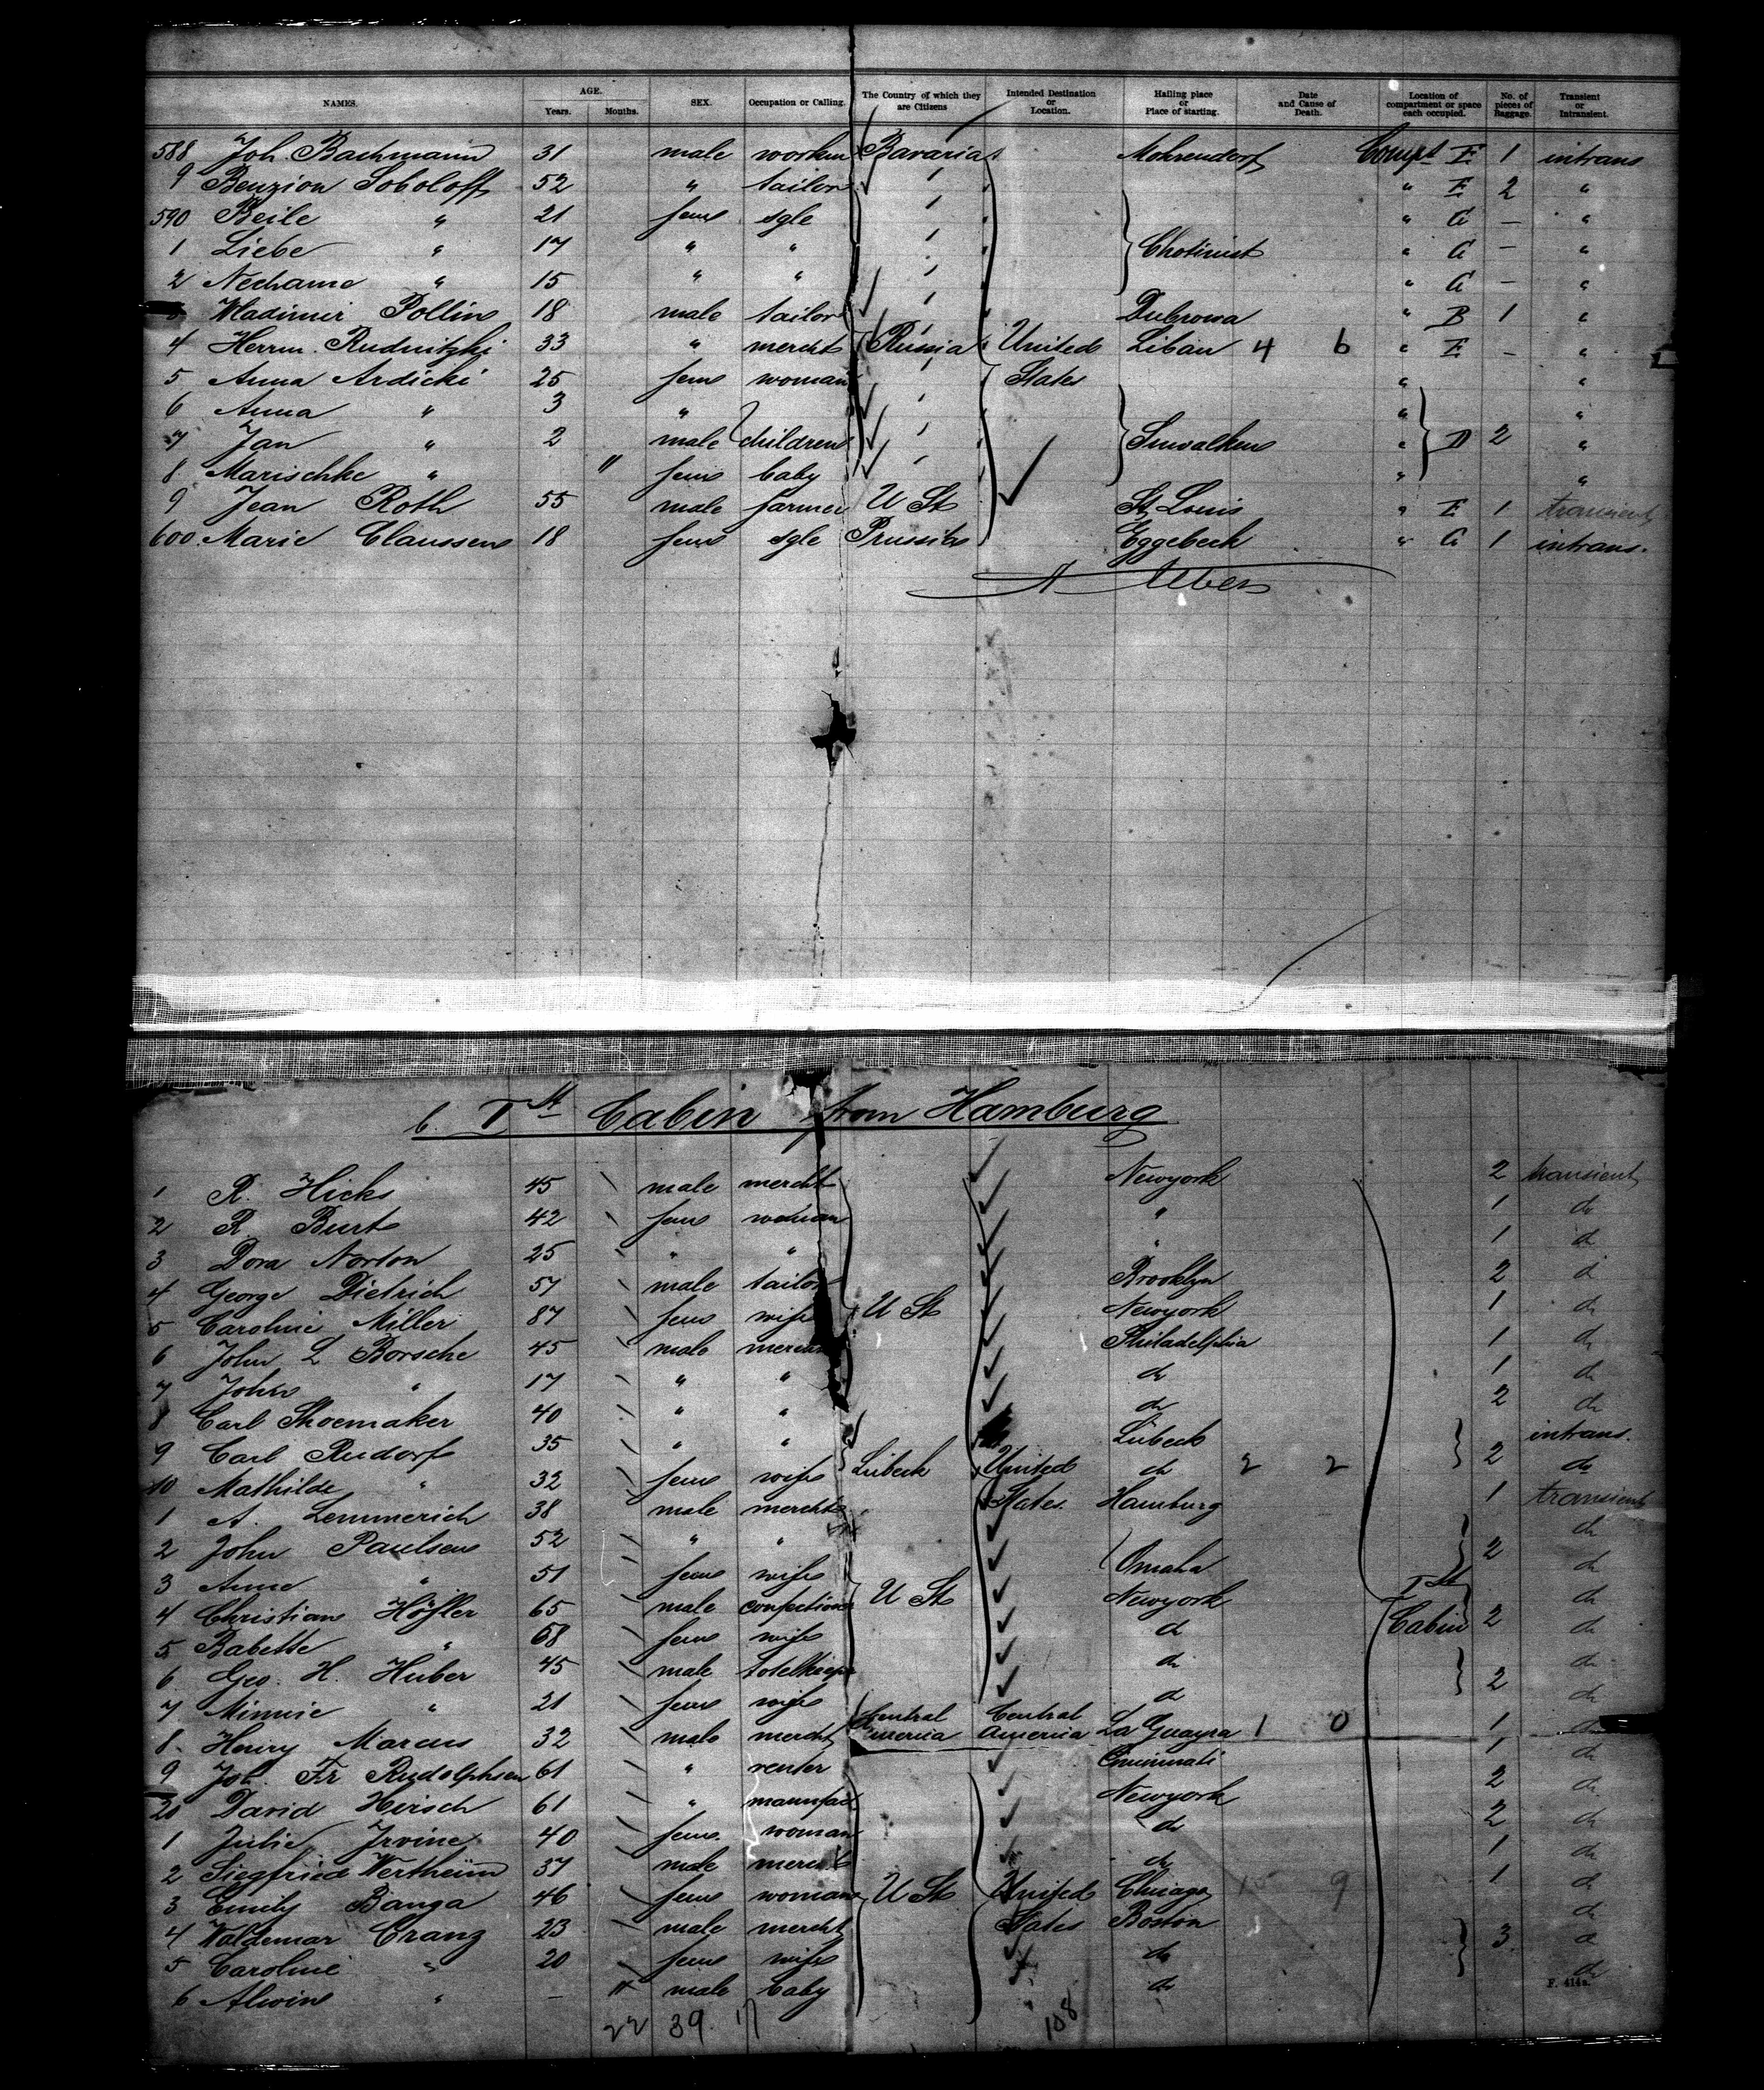 NAMES. AGE. Years. Months. SEX. Occupation or Calling. The Country of which they are Citizens Intended Destination or Location. Hailing place or Place of starting. Date and Cause of Death. Location of compartment or space each occupied. No. of pieces of Baggage. Transient or Intransient.
588 Joh. Bachmann 31 male workm Bavaria Mohrendorf Compt E 1 intrans
9 Benzion Soboloff 52 " tailor " E 2 "
590 Beile " 21 fem sgle " G — "
1 Liebe " 17 " " Chotimst " G — "
2 Nechame " 15 " " " G — "
Wladimir Pollin 18 male tailor Dubrowa " B 1 "
4 Herm. Rudnitzki 33 " mercht Russia United Libau 4 6 " E — "
5 Anna Ardicki 25 fem woman States " "
6 Anna " 3 " " "
7 Jan " 2 male children Suwalken " D 2 "
8 Marischke " 11 fem baby " "
9 Jean Roth 55 male farmer U St St. Louis " E 1 transient
600. Marie Claussen 18 fem sgle Prussia Eggebeck " G 1 intrans.
A Albers
b. Ist Cabin from Hamburg
1 R. Hicks 45 male mercht Newyork 2 transient
2 R Burt 42 fem woman " 1 do
3 Dora Norton 25 " " " 1 d
4 George Dietrich 57 male tailor Brooklyn 2 d
5 Caroline Miller 87 fem wife U St Newyork 1 do
6 John L Borsche 45 male mercht Philadelphia 1 do
7 John " 17 " " do 1 do
8 Carl Shoemaker 40 " " do 2 do
9 Carl Rudorf 35 " " Lübeck intrans.
10 Mathilde " 32 fem wife Lübeck United do 2 2 2 do
1 A. Lemmerich 38 male mercht States. Hamburg 1 transient
2 John Paulsen 52 " " 2 do
3 Anna " 51 fem wife Omaha do
4 Christian Höfler 65 male confectioner U St Newyork Ist do
5 Babette " 68 fem wife do Cabin 2 do
6 Geo. H. Huber 45 male hotelkeeper do do
7 Minnie " 21 fem wife d 2 do
8. Henry Marcus 32 male mercht Central America Central America La Guayra 1 0 1 do
9 Joh. Fr Rudolphsen 61 " renter Cincinnati 1 do
20 David Hirsch 61 " manufac Newyork 2 do
1 Julie Irvine 40 fem. woman do 2 do
2 Siegfried Wertheim 37 male mercht do 1 do
3 Emily Banga 46 fem woman U St United Chicago 15 9 1 do
4 Waldemar Cranz 23 male mercht States Boston do
5 Caroline " 20 fem wife do 3 d
6 Alwin " — 11 male baby do do
F. 414a.
22 39. 17 108